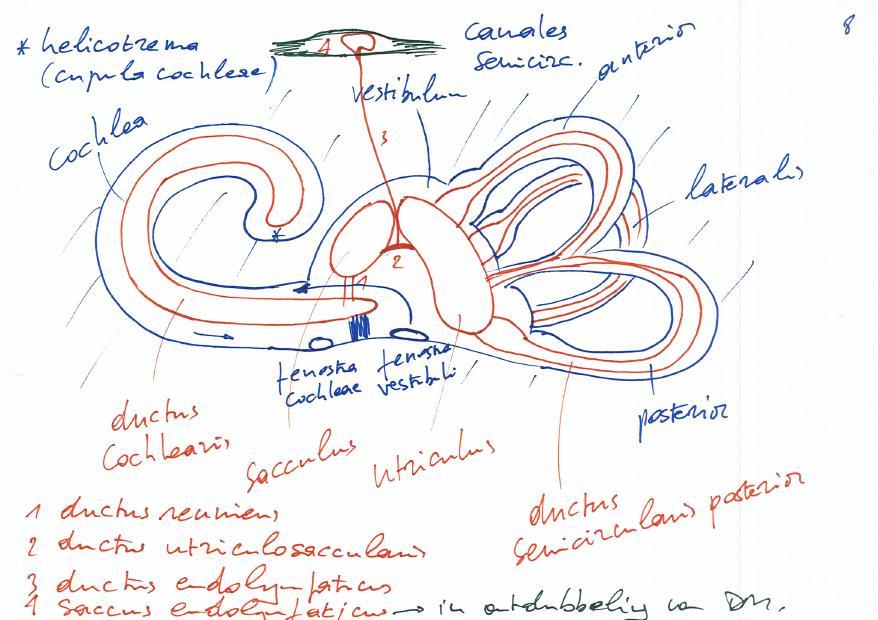 8
* helicotrema
(cupula cochleae)
4
canales
semicirc.
anterior
vestibulum
cochlea
3
lateralis
*
2
1
fenestra
cochleae
fenestra
vestibuli
posterior
ductus
cochlearis
sacculus
utriculus
ductus
semicircularis posterior
1 ductus reuniens
2 ductus utriculosaccularis
3 ductus endolymfaticus
4 saccus endolymfaticus → in ontdubbeling van DM.